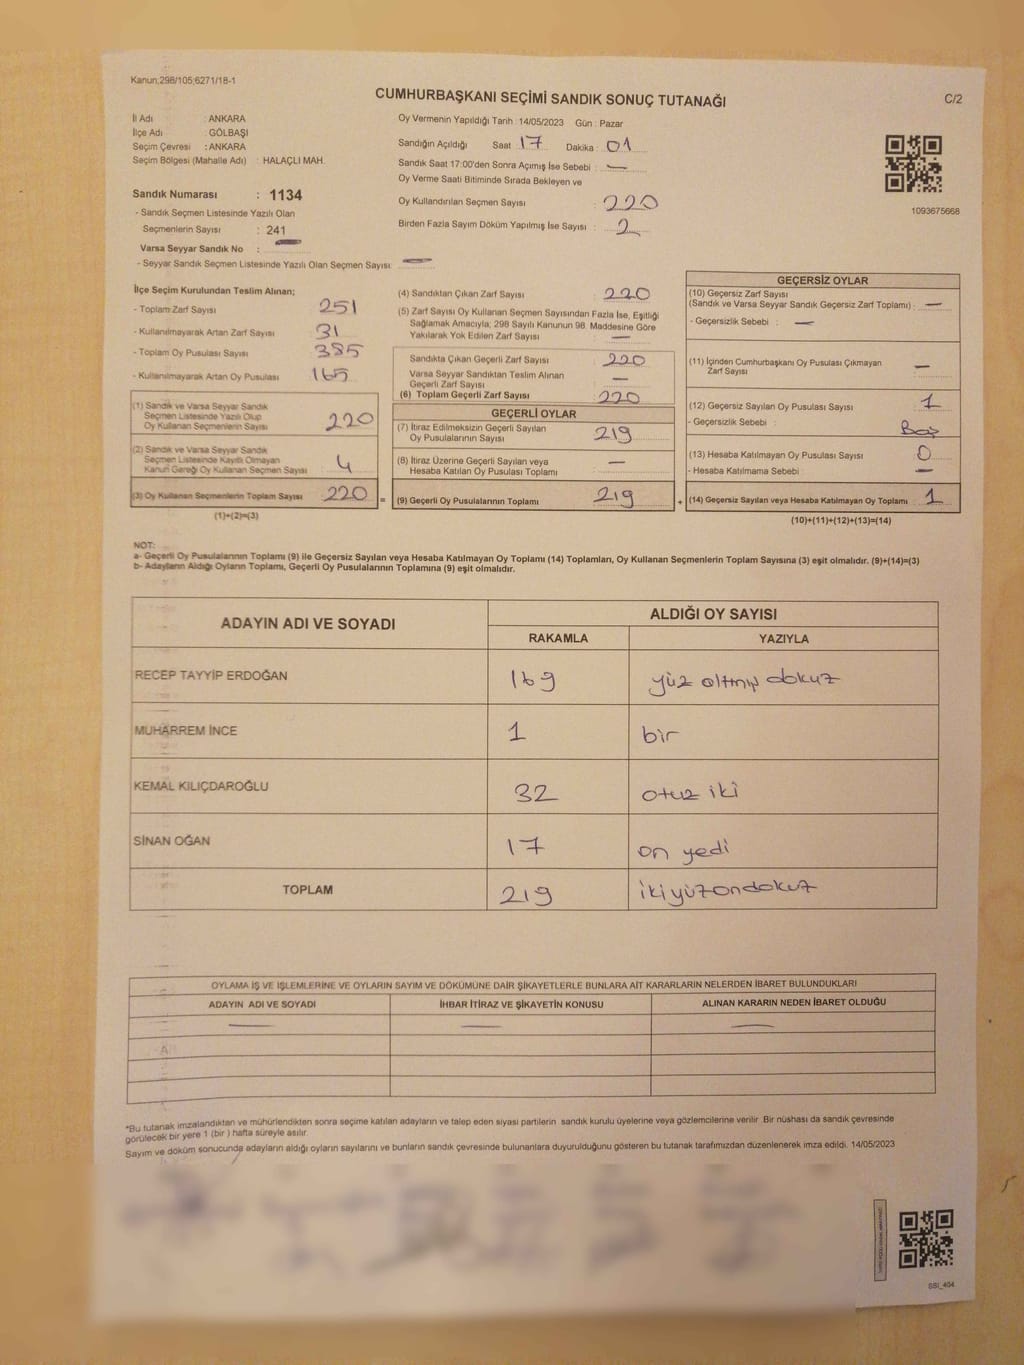 Kanun;298/105;6271/18-1
CUMHURBAŞKANI SEÇİMİ SANDIK SONUÇ TUTANAĞI
C/2
İl Adı : ANKARA
İlçe Adı : GÖLBAŞI
Seçim Çevresi : ANKARA
Seçim Bölgesi (Mahalle Adı) : HALAÇLI MAH.
Sandık Numarası : 1134
- Sandık Seçmen Listesinde Yazılı Olan
Seçmenlerin Sayısı : 241
Varsa Seyyar Sandık No : —
- Seyyar Sandık Seçmen Listesinde Yazılı Olan Seçmen Sayısı: —
Oy Vermenin Yapıldığı Tarih : 14/05/2023 Gün : Pazar
Sandığın Açıldığı Saat : 17 Dakika : 01
Sandık Saat 17:00'den Sonra Açımış İse Sebebi : —
Oy Verme Saati Bitiminde Sırada Bekleyen ve
Oy Kullandırılan Seçmen Sayısı : 220
Birden Fazla Sayım Döküm Yapılmış İse Sayısı : 2
1093675668
İlçe Seçim Kurulundan Teslim Alınan;
- Toplam Zarf Sayısı 251
- Kullanılmayarak Artan Zarf Sayısı 31
- Toplam Oy Pusulası Sayısı 385
- Kullanılmayarak Artan Oy Pusulası 165
(1) Sandık ve Varsa Seyyar Sandık
Seçmen Listesinde Yazılı Olup
Oy Kullanan Seçmenlerin Sayısı 220
(2) Sandık ve Varsa Seyyar Sandık
Seçmen Listesinde Kayıtlı Olmayan
Kanun Gereği Oy Kullanan Seçmen Sayısı 4
(3) Oy Kullanan Seçmenlerin Toplam Sayısı 220 =
(1)+(2)=(3)
(4) Sandıktan Çıkan Zarf Sayısı : 220
(5) Zarf Sayısı Oy Kullanan Seçmen Sayısından Fazla İse, Eşitliği
Sağlamak Amacıyla; 298 Sayılı Kanunun 98. Maddesine Göre
Yakılarak Yok Edilen Zarf Sayısı : —
Sandıkta Çıkan Geçerli Zarf Sayısı : 220
Varsa Seyyar Sandıktan Teslim Alınan
Geçerli Zarf Sayısı : —
(6) Toplam Geçerli Zarf Sayısı : 220
GEÇERLİ OYLAR
(7) İtiraz Edilmeksizin Geçerli Sayılan
Oy Pusulalarının Sayısı : 219
(8) İtiraz Üzerine Geçerli Sayılan veya
Hesaba Katılan Oy Pusulası Toplamı : —
(9) Geçerli Oy Pusulalarının Toplamı : 219 +
GEÇERSİZ OYLAR
(10) Geçersiz Zarf Sayısı
(Sandık ve Varsa Seyyar Sandık Geçersiz Zarf Toplamı) : —
- Geçersizlik Sebebi : —
(11) İçinden Cumhurbaşkanı Oy Pusulası Çıkmayan
Zarf Sayısı : —
(12) Geçersiz Sayılan Oy Pusulası Sayısı : 1
- Geçersizlik Sebebi : Boş
(13) Hesaba Katılmayan Oy Pusulası Sayısı : 0
- Hesaba Katılmama Sebebi : —
(14) Geçersiz Sayılan veya Hesaba Katılmayan Oy Toplamı : 1
(10)+(11)+(12)+(13)=(14)
NOT:
a- Geçerli Oy Pusulalarının Toplamı (9) ile Geçersiz Sayılan veya Hesaba Katılmayan Oy Toplamı (14) Toplamları, Oy Kullanan Seçmenlerin Toplam Sayısına (3) eşit olmalıdır. (9)+(14)=(3)
b- Adayların Aldığı Oyların Toplamı, Geçerli Oy Pusulalarının Toplamına (9) eşit olmalıdır.
ADAYIN ADI VE SOYADI
ALDIĞI OY SAYISI
RAKAMLA YAZIYLA
RECEP TAYYİP ERDOĞAN 169 yüz altmış dokuz
MUHARREM İNCE 1 bir
KEMAL KILIÇDAROĞLU 32 otuz iki
SİNAN OĞAN 17 on yedi
TOPLAM 219 ikiyüzondokuz
OYLAMA İŞ VE İŞLEMLERİNE VE OYLARIN SAYIM VE DÖKÜMÜNE DAİR ŞİKAYETLERLE BUNLARA AİT KARARLARIN NELERDEN İBARET BULUNDUKLARI
ADAYIN ADI VE SOYADI İHBAR İTİRAZ VE ŞİKAYETİN KONUSU ALINAN KARARIN NEDEN İBARET OLDUĞU
— — —
*Bu tutanak imzalandıktan ve mühürlendikten sonra seçime katılan adayların ve talep eden siyasi partilerin sandık kurulu üyelerine veya gözlemcilerine verilir. Bir nüshası da sandık çevresinde
görülecek bir yere 1 (bir ) hafta süreyle asılır.
Sayım ve döküm sonucunda adayların aldığı oyların sayılarını ve bunların sandık çevresinde bulunanlara duyurulduğunu gösteren bu tutanak tarafımızdan düzenlenerek imza edildi. 14/05/2023
SSI_404